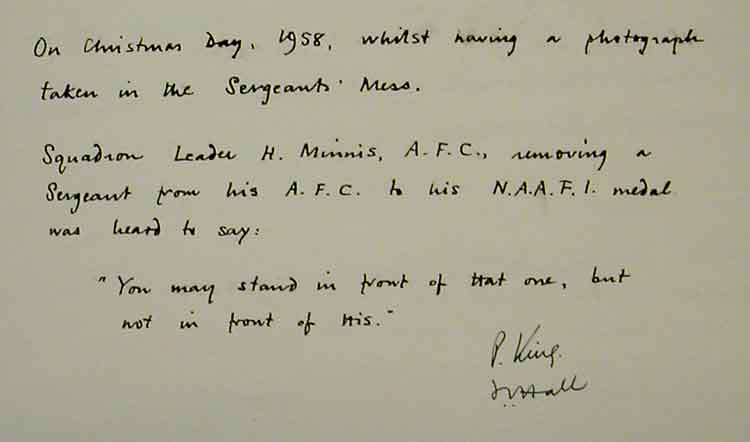 On Christmas Day, 1958, whilst having a photograph
taken in the Sergeants' Mess.
Squadron Leader H. Minnis, A.F.C., removing a
Sergeant from his A.F.C. to his N.A.A.F.I. medal
was heard to say:
"You may stand in front of that one, but
not in front of this."
P. King.
Hall